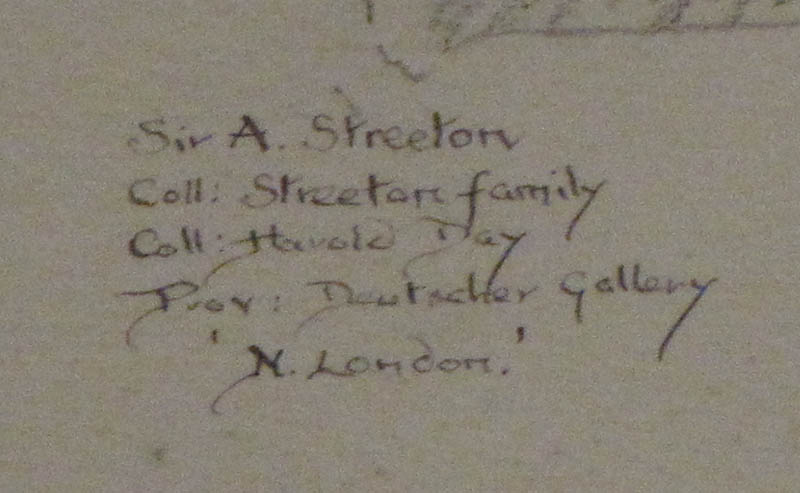 Sir A. Streeton
Coll: Streeton family
Coll: Harold Day
Prov: Deutscher Gallery
'N. London.'